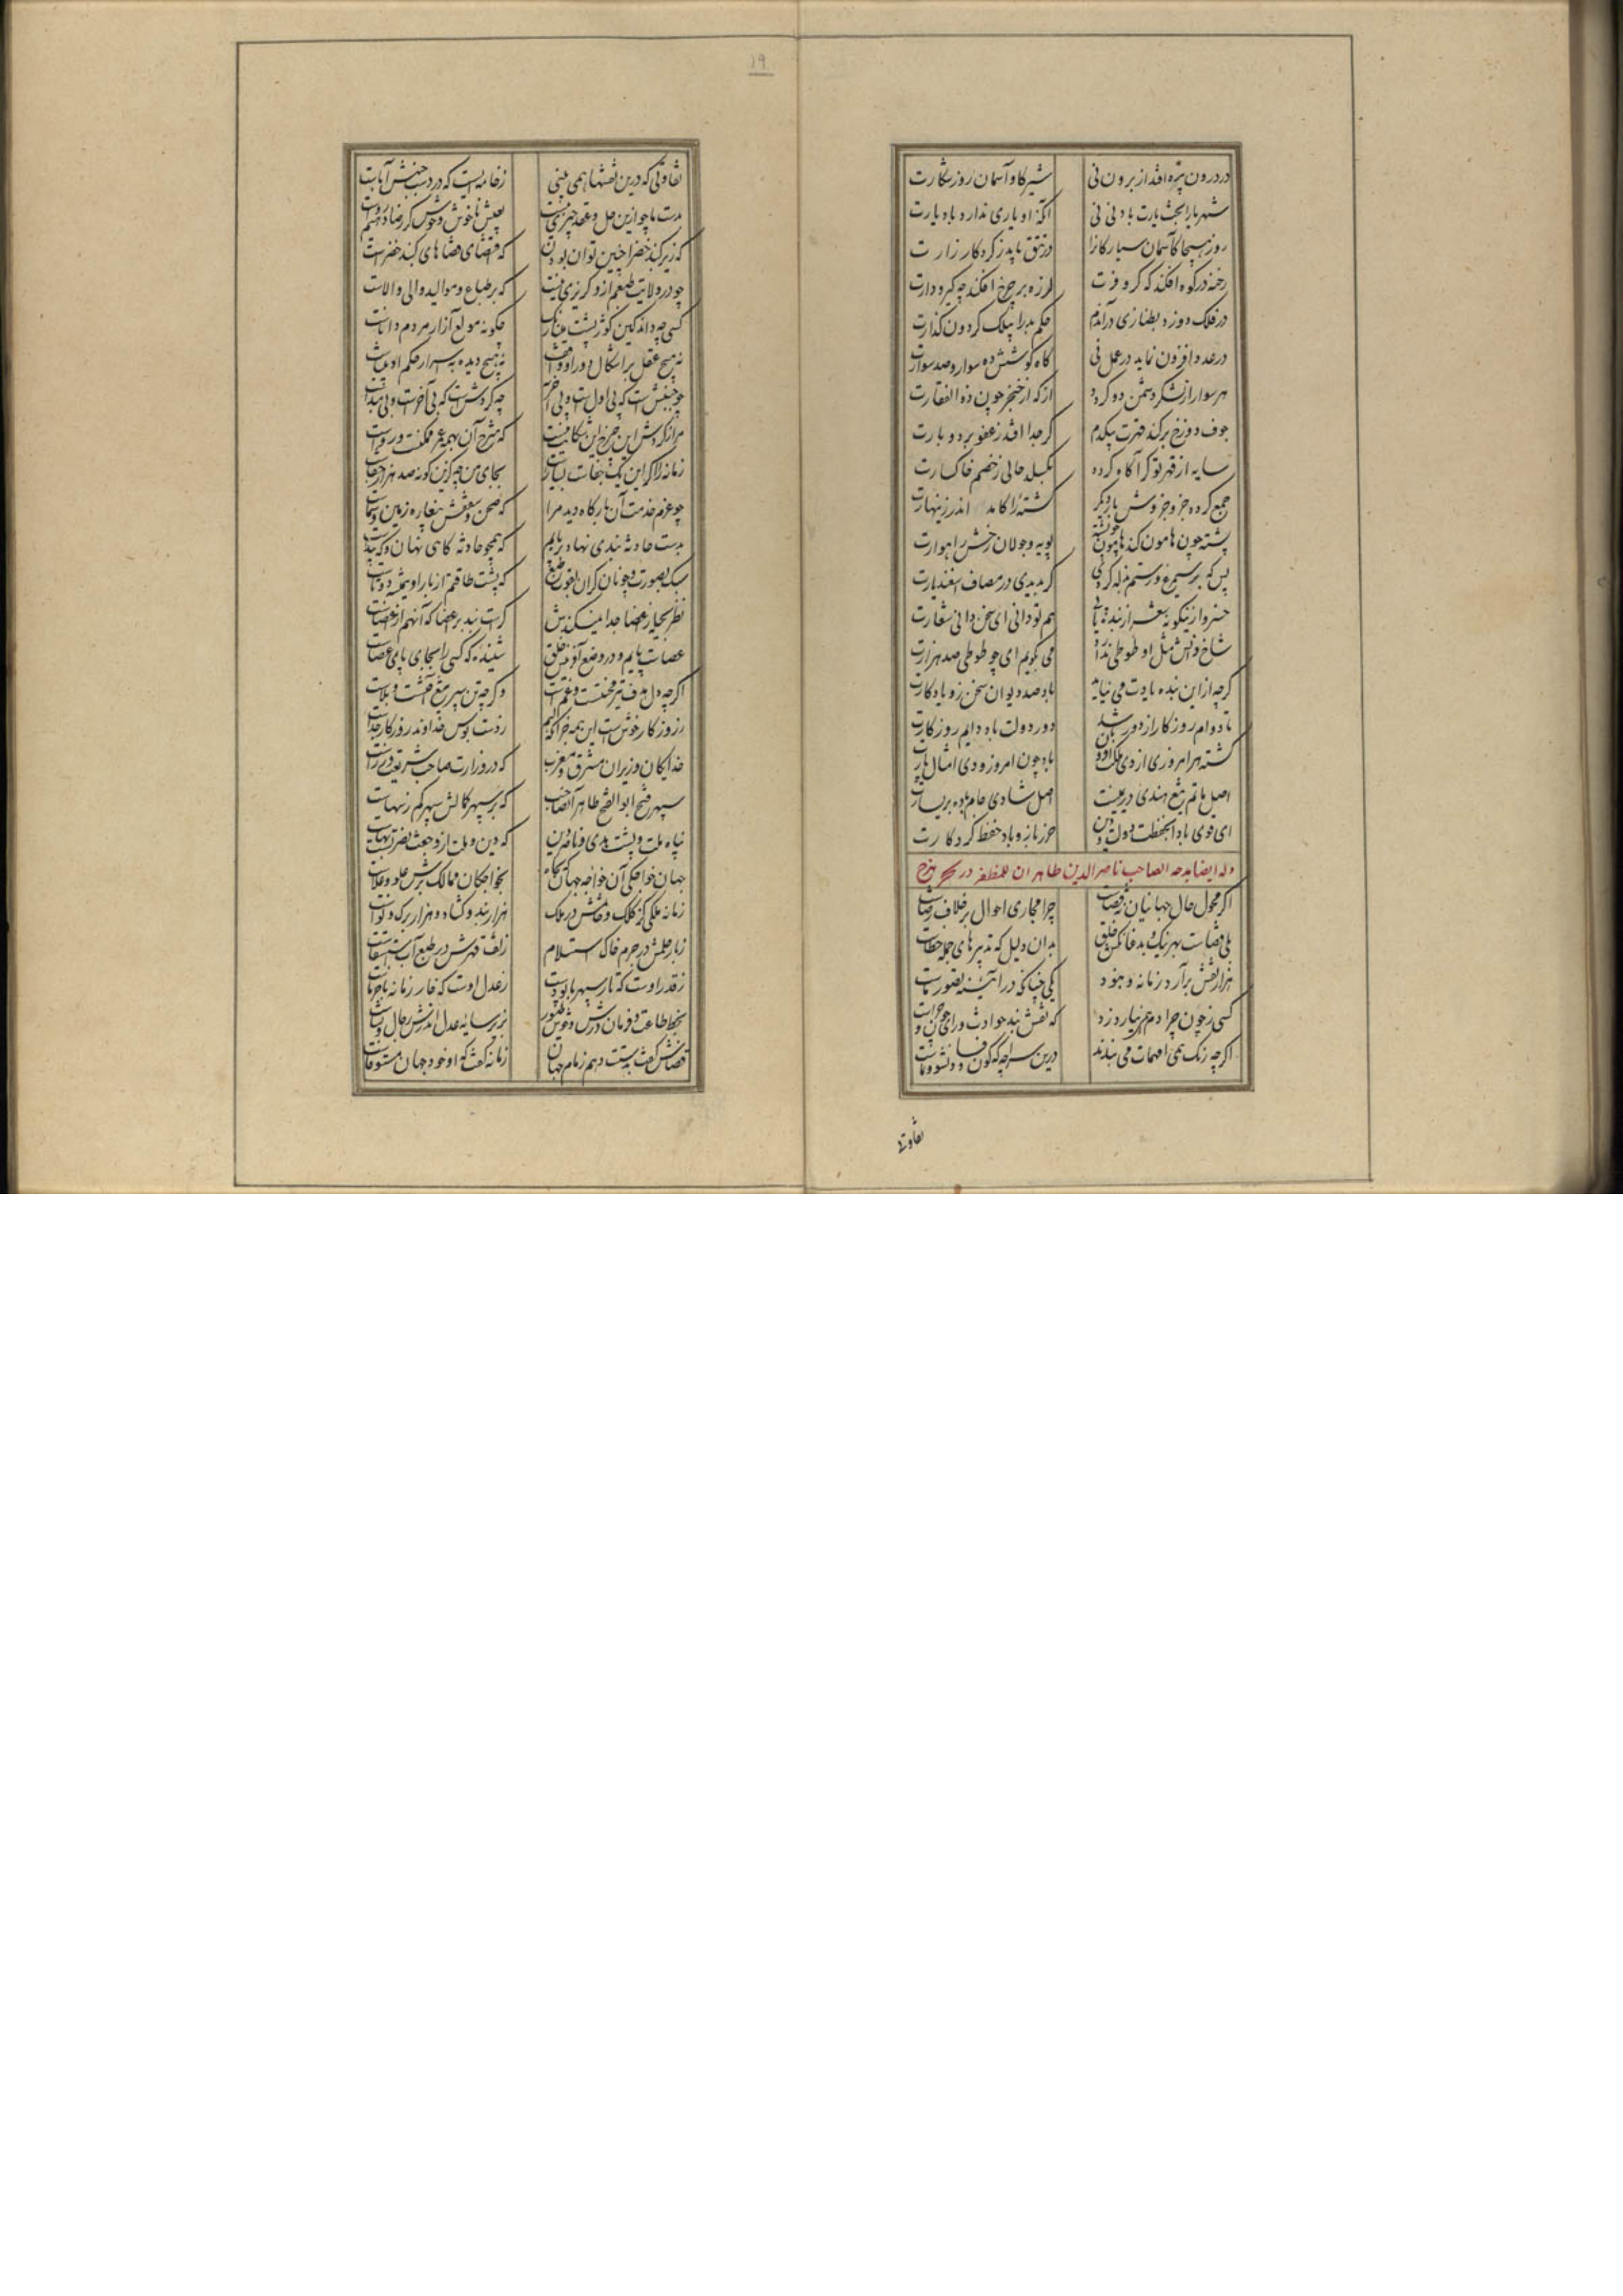 ۱۹
در درون پیژه افتد از برون نی
شیر گاو آسمان روز شکارت
شهریارا بخت یارت باد نی نی
آنکه او یاری ندارد باد یارت
روز هیجا کآسمان سیارگانرا
در تتق یابد ز گرد کارزارت
رخنه در کوه افکند که کر و فرت
لرزه بر چرخ افکند چه گیر و دارت
در فلک دوزد بطنازی در آندم
حکم بدرا بیلک گردون گذارت
در عدد افزون نماید در عمل نی
گاه کوشش ده سوار و صد سوارت
هر سوار از لشکر دشمن دو گردد
از که از خنجر چون ذوالفقارت
جوف دوزخ پر کند قهرت بیکدم
گر جدا افتد ز عفو بردبارت
سایه از قهر تو گر آگاه گردد
بگسلد حالی ز خصم خاکسارت
جمع گردد جزو جزوش بار دیگر
کشته را کامد اندر زینهارت
پشته چون هامون کند هامون چو پشته
پویه و جولان رخش راهوارت
بس که بر سیمرغ و رستم بذله کردی
گر بدیدی در مصاف اسفندیارت
خسروا زینگونه شعر از بنده یابی
هم تو دانی ای سخن دانی شعارت
شاخ دانش مثل او طوطی ندارد
می بگویم ای چو طوطی صد هزارت
گرچه از این بنده یادت می نیاید
باد صد دیوان سخن زو یادگارت
تا دوام روزگار از دور باشد
دور دولت باد دایم روزگارت
گشته هر امروزی از دی ملک افزون
باد چون امروز و دی امثال پارت
اصل ماتم تیغ هندی در یمینت
اصل شادی جام باده بر یسارت
ای قوی بازو بحفظت دولت و دین
حرز بازو باد حفظ کردگارت
وله ایضا بمدحه الصاحب ناصرالدین طاهر ابن المظفر
اگر محول حال جهانیان نه قضاست
چرا مجاری احوال بر خلاف رضاست
بلی قضاست بهر نیک و بد عنان کش خلق
بدان دلیل که تدبیرهای جمله خطاست
هزار نقش برآرد زمانه و نبود
یکی چنانکه در آئینه تصور ماست
کسی ز چون و چرا دم همی نیارد زد
که نقش بند حوادث ورای چون و چراست
اگرچه نقش همه امهات می بندند
درین سراچه که کون و فساد و نشو و نماست
تفاوتی
تفاوتی که درین نقشها همی بینی
ز خامه ایست که در دست جنبش آباست
بدست ما چو ازین حل و عقد چیزی نیست
بعیش ناخوش و خوش گر رضا دهیم رواست
که زیر گنبد خضرا چنین توان بودن
که اقتضای قضاهای گنبد خضراست
چو در ولایت طبعیم ازو گریزی نیست
که بر طباع و موالید والی والاست
کسی چه داند کین کوژپشت مینا رنگ
چگونه مولع آزار مردم داناست
نه هیچ عقل بر اشکال دور او واقف
نه هیچ دیده بر اسرار حکم او بیناست
چه جنبش است که بی اول است و بی آخر
چه گردش است که بی آخرست و بی مبداست
مرا ز گردش این چرخ این شکایت نیست
که شرح آن بهمه عمر ممکنست و رواست
زمانه را اگر این یک جفاست بسیارست
بجای من چه کزین گونه صد هزار جفاست
چو عزم خدمت آن بارگاه دید مرا
که صحن و سقفش بیغاره زمین و سماست
بدست حادثه بندی نهاد بر پایم
که همچو حادثه گاهی نهان و گه پیداست
سبک بصورت و چونان گران بقوت طبع
که پشت طاقتم از بار او همیشه دوتاست
نظر بحیله ز اعضا جدا نمیکندش
کراست بند بر اعضا که آنهم از اعضاست
عصاست پایم و در وضع آفرینش خلق
شنیده که کسی را بجای پای عصاست
اگرچه دل هدف تیر محنتست و غمست
وگرچه تن سپر تیغ آفتست و بلاست
ز روزگار خوشست این همه جز آنکه لبم
ز دست بوس خداوند روزگار جداست
خدایگان وزیران مشرق و مغرب
که در وزارت صاحب شریعت وزراست
سپهر فتح ابوالفتح طاهر آن صاحب
که بر سپهر کمالش سپهر کم ز سهاست
پناه ملت و پشت هدی و ناصر دین
که دین و ملت ازو جفت نصرتست و بهاست
جهان خواجگی آن خواجه جهان که بجاه
بخواجگان ممالک برش علو و علاست
زمانه ملکی کز کلک و خاتمش در ملک
هزار بند و گشاد و هزار برگ و نواست
ز بار حلمش در جرم خاک استسلام
ز تف قهرش در طبع آب استسقاست
ز قدر اوست که تار سپهر با پودست
ز عدل اوست که خار زمانه با خرماست
بخط طاعت و فرمان درش وحوش و طیور
بزیر سایه عدل اندرش رجال و نساست
قضاش گفت بدستت دهم زمام جهان
زمانه گفت که او خود جهان مستوفاست